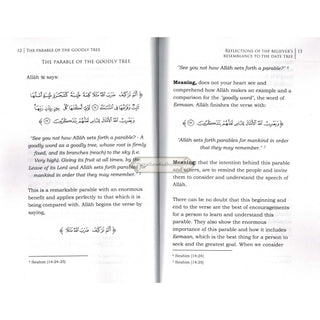 12 | THE PARABLE OF THE GOODLY TREE
THE PARABLE OF THE GOODLY TREE
Allāh ﷻ says:
﴿ أَلَمْ تَرَ كَيْفَ ضَرَبَ ٱللَّهُ مَثَلًا كَلِمَةً طَيِّبَةً
كَشَجَرَةٍ طَيِّبَةٍ أَصْلُهَا ثَابِتٌ وَفَرْعُهَا فِي ٱلسَّمَاءِ ﴿٢٤﴾ تُؤْتِي أُكُلَهَا كُلَّ حِينٍ بِإِذْنِ رَبِّهَا
وَيَضْرِبُ ٱللَّهُ ٱلْأَمْثَالَ لِلنَّاسِ لَعَلَّهُمْ يَتَذَكَّرُونَ ﴾
"See you not how Allāh sets forth a parable? - A
goodly word as a goodly tree, whose root is firmly
fixed, and its branches (reach) to the sky (i.e.
Very high). Giving its fruit at all times, by the
Leave of its Lord and Allāh sets forth parables for
mankind in order that they may remember."
This is a remarkable parable with an enormous
benefit and applies perfectly to that which it is
being compared with. Allāh begins the verse by
saying,
﴿ أَلَمْ تَرَ كَيْفَ ضَرَبَ ٱللَّهُ ﴾
Ibrahim [14:24-25]
REFLECTIONS OF THE BELIEVER'S | 13
RESEMBLANCE TO THE DATE TREE
"See you not how Allāh sets forth a parable?"
Meaning, does not your heart see and
comprehend how Allāh makes an example and a
comparison for the "goodly word", the word of
Eemaan. Allāh finishes the verse with:
﴿ وَيَضْرِبُ ٱللَّهُ ٱلْأَمْثَالَ لِلنَّاسِ لَعَلَّهُمْ يَتَذَكَّرُونَ ﴾
"Allāh sets forth parables for mankind in order
that they may remember."
Meaning; that the intention behind this parable
and others, are to remind the people and invite
them to consider and understand the speech of
Allāh.
There can be no doubt that this beginning and
end to the verse are the best of encouragements
for a person to learn and understand this
parable. They also show the enormous
importance of this parable and how it includes
Eemaan, which is the best thing for a person to
seek and the greatest goal. When we consider
Ibrahim [14:24]
Ibrahim [14:25]